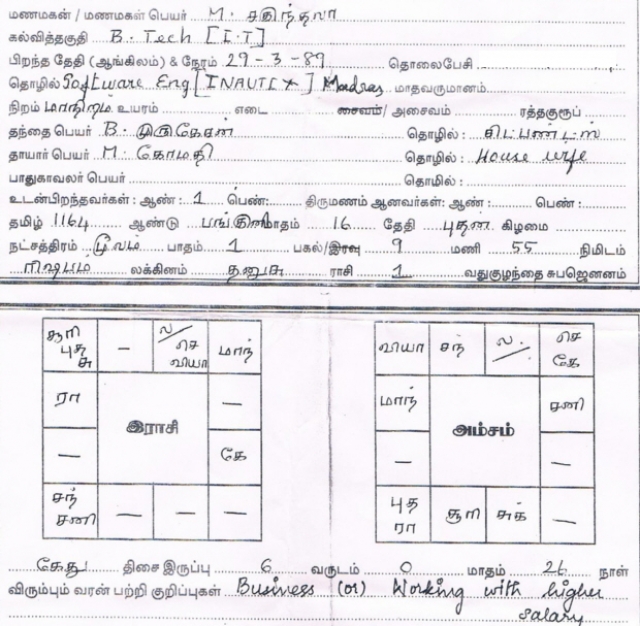 மணமகன் / மணமகள் பெயர் M. சகுந்தலா
கல்வித்தகுதி B. Tech [I.T]
பிறந்த தேதி (ஆங்கிலம்) & நேரம் 29-3-89 தொலைபேசி
தொழில் Software Eng [INAUTIX] Madras மாதவருமானம்
நிறம் மாநிறம் உயரம் எடை சைவம்/ அசைவம் ரத்தகுரூப்
தந்தை பெயர் B. முருகேசன் தொழில் :
தாயார் பெயர் M. கோமதி தொழில் : House wife
பாதுகாவலர் பெயர் தொழில் :
உடன்பிறந்தவர்கள் : ஆண் : 1 பெண்: திருமணம் ஆனவர்கள்: ஆண் : பெண் :
தமிழ் 1164 ஆண்டு பங்குனி மாதம் 16 தேதி புதன் கிழமை
நட்சத்திரம் மூலம் பாதம் 1 பகல்/இரவு 9 மணி 55 நிமிடம்
ரிஷபம் லக்கினம் தனுசு ராசி 1 வதுகுழந்தை சுபஜெனனம்
சூரி புத சு – ல/ செ வியா மாந்
ரா இராசி –
– கே
சந் சனி – – –
வியா சந் ல. செ கே
மாந் அம்சம் சனி
– –
புத ரா சூரி சுக் –
கேது திசை இருப்பு 6 வருடம் 0 மாதம் 26 நாள்
விரும்பும் வரன் பற்றி குறிப்புகள் Business (or) Working with higher
salary